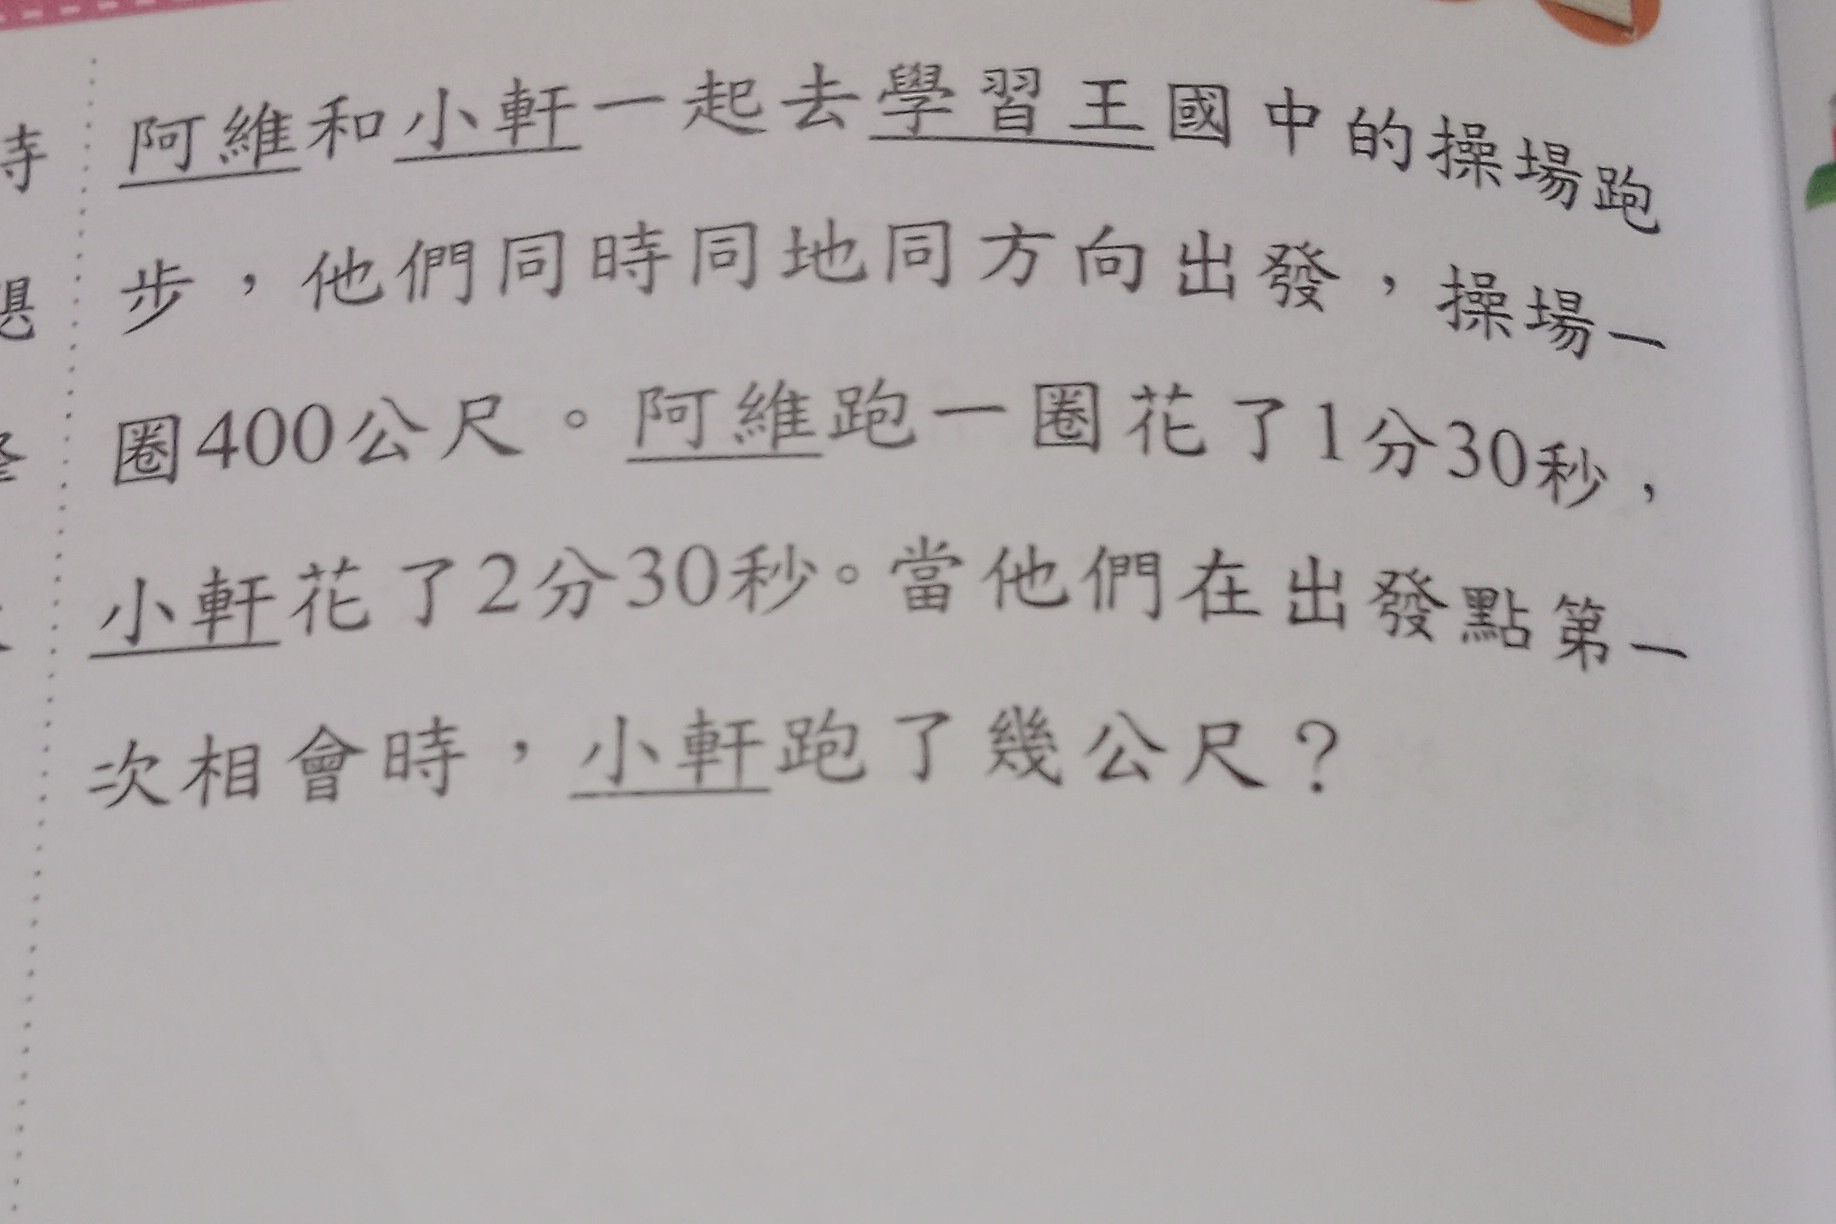 阿維和小軒一起去學習王國中的操場跑
步，他們同時同地同方向出發，操場一
圈400公尺。阿維跑一圈花了1分30秒，
小軒花了2分30秒。當他們在出發點第一
次相會時，小軒跑了幾公尺？